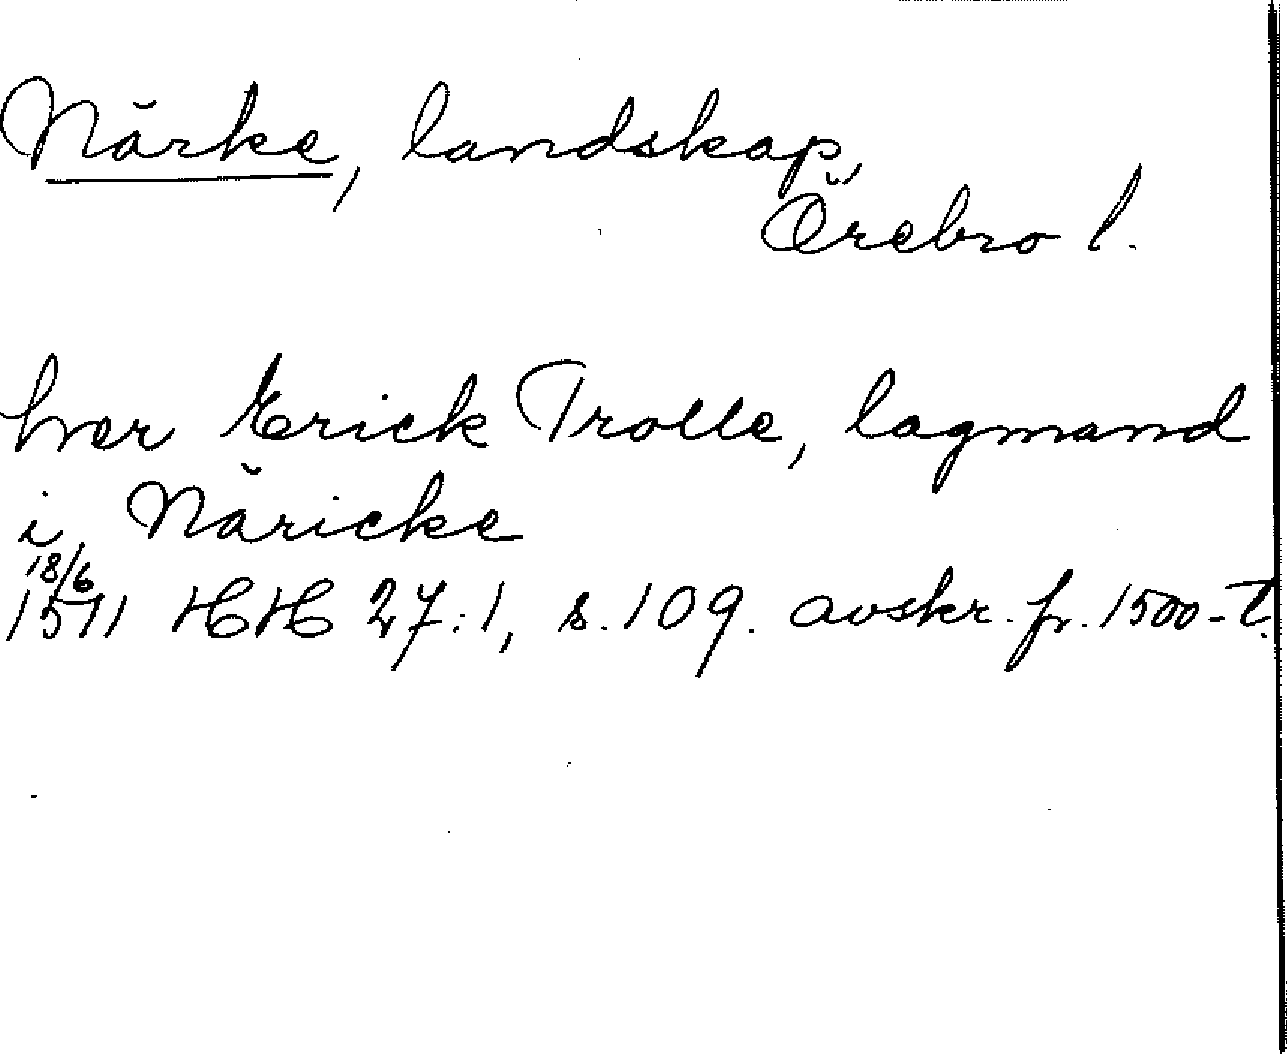 Närke, landskap,
Örebro l.
her Erick Trolle, lagmand
i Näricke
18/6
1511 HH 27:1, s. 109. avskr. fr. 1500-t.